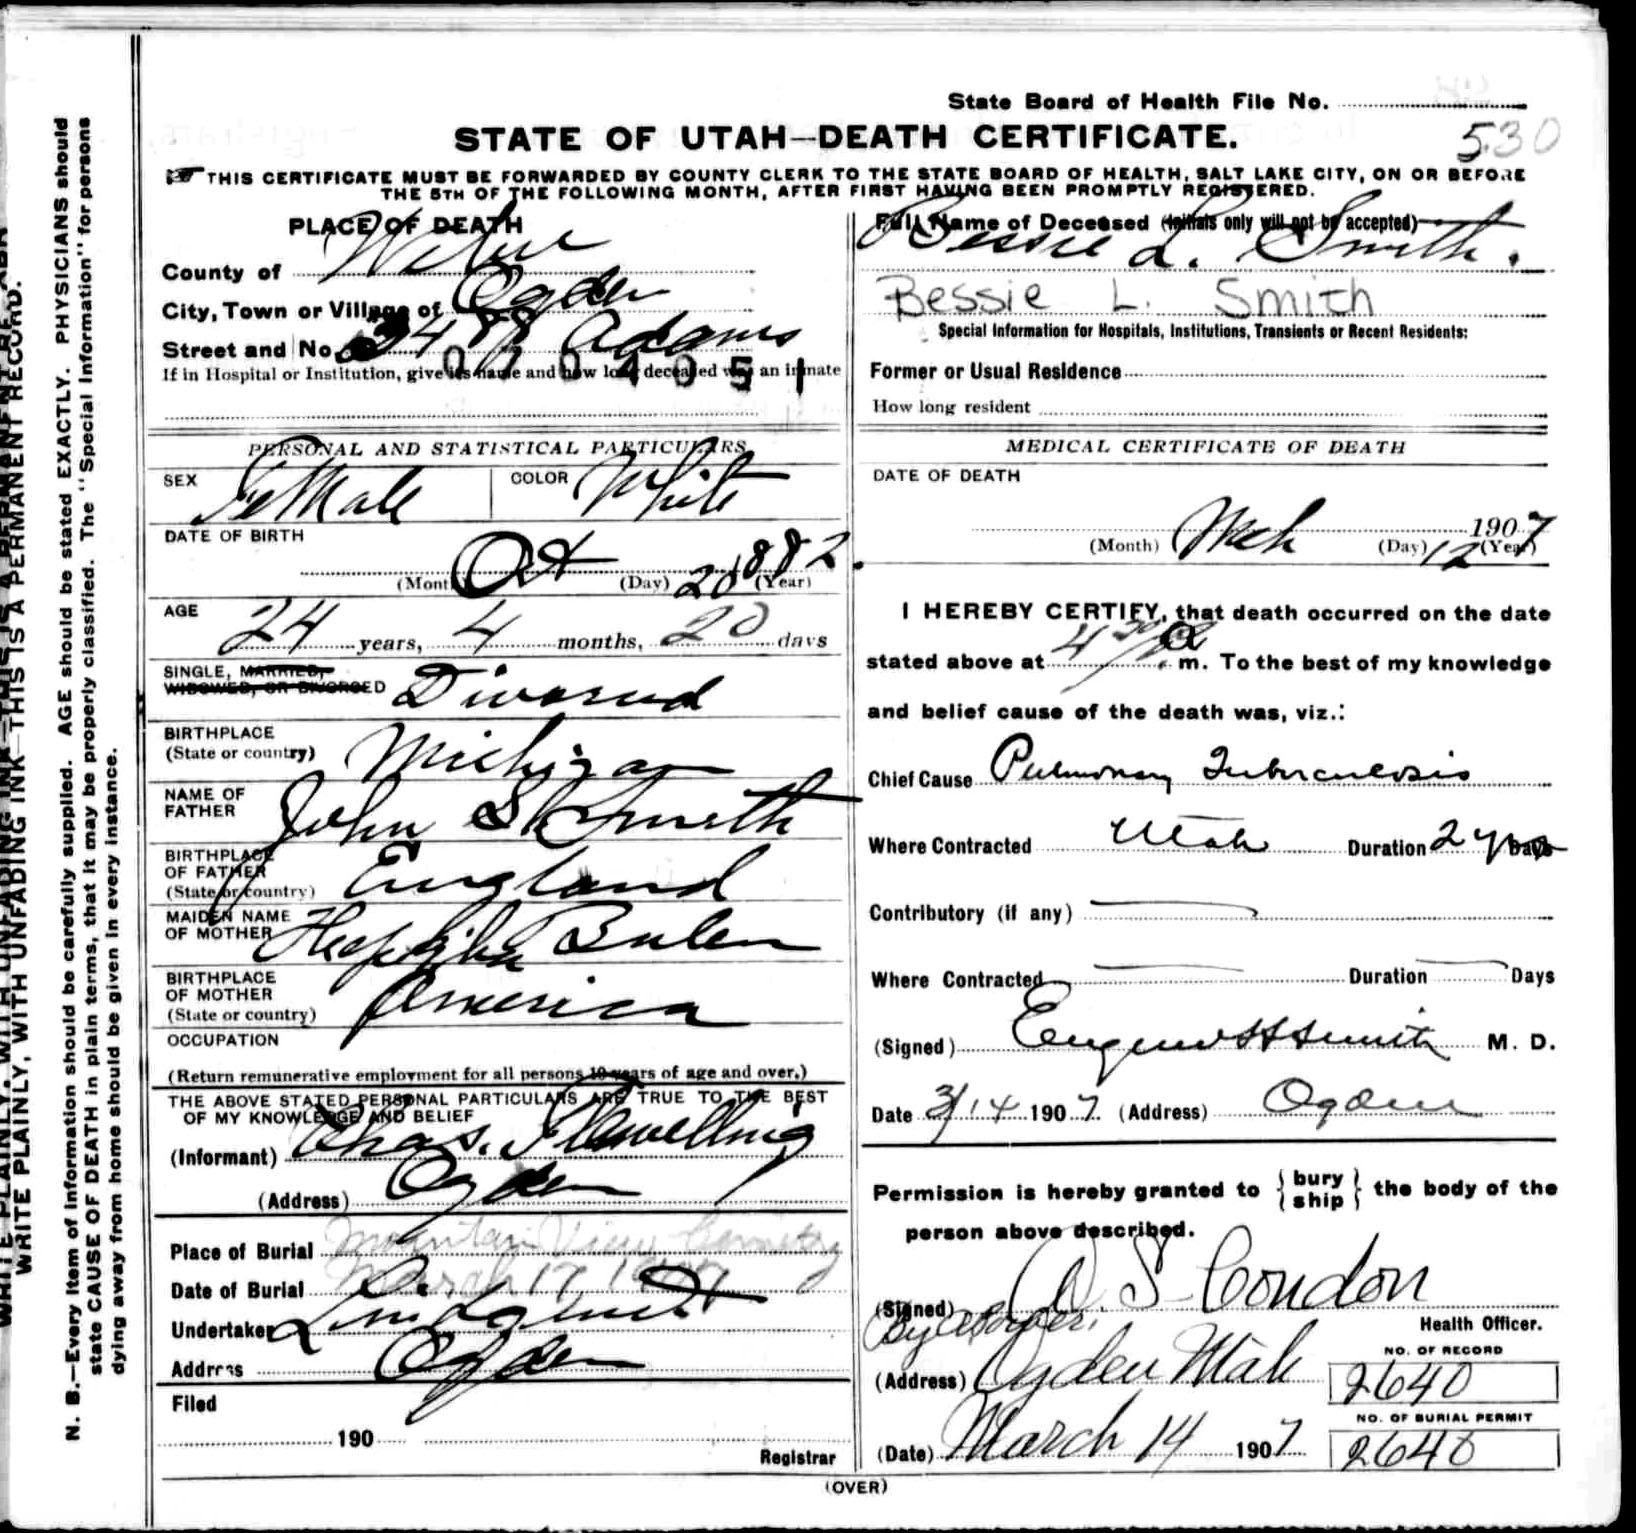 State Board of Health File No.
530
STATE OF UTAH—DEATH CERTIFICATE.
THIS CERTIFICATE MUST BE FORWARDED BY COUNTY CLERK TO THE STATE BOARD OF HEALTH, SALT LAKE CITY, ON OR BEFORE
THE 5TH OF THE FOLLOWING MONTH, AFTER FIRST HAVING BEEN PROMPTLY REGISTERED.
PLACE OF DEATH
County of Weber
City, Town or Village of Ogden
Street and No. 3488 Adams
If in Hospital or Institution, give its name and how long deceased was an inmate
0 7 0 4 0 5 1
PERSONAL AND STATISTICAL PARTICULARS
SEX FeMale COLOR White
DATE OF BIRTH
(Month) Oct (Day) 20 (Year) 1882
AGE
24 years, 4 months, 20 days
SINGLE, MARRIED,
WIDOWED, OR DIVORCED Divorced
BIRTHPLACE
(State or country) Michigan
NAME OF
FATHER John S Smith
BIRTHPLACE
OF FATHER
(State or country) England
MAIDEN NAME
OF MOTHER Hephziba Bulen
BIRTHPLACE
OF MOTHER
(State or country) America
OCCUPATION
(Return remunerative employment for all persons 10 years of age and over.)
THE ABOVE STATED PERSONAL PARTICULARS ARE TRUE TO THE BEST
OF MY KNOWLEDGE AND BELIEF
(Informant) Chas. Flewelling
(Address) Ogden
Place of Burial Mountain View Cemetery
Date of Burial March 17 1907
Undertaker Lindquist
Address Ogden
Filed
190
Registrar
Full Name of Deceased (Initials only will not be accepted)
Bessie L. Smith.
Bessie L. Smith
Special Information for Hospitals, Institutions, Transients or Recent Residents:
Former or Usual Residence
How long resident
MEDICAL CERTIFICATE OF DEATH
DATE OF DEATH
1907
(Month) Mch (Day) 12 (Year)
I HEREBY CERTIFY, that death occurred on the date
stated above at 4 30 a. m. To the best of my knowledge
and belief cause of the death was, viz.:
Chief Cause Pulmonary Tuberculosis
Where Contracted Utah Duration 2 yrs Days
Contributory (if any)
Where Contracted Duration Days
(Signed) Eugene H Smith M. D.
Date 3/14 1907. (Address) Ogden
Permission is hereby granted to { bury ship } the body of the
person above described.
(Signed) A S Condon
Health Officer.
(Address) Ogden Utah
NO. OF RECORD
2640
NO. OF BURIAL PERMIT
2640
(Date) March 14 1907
(OVER)
N. B.—Every item of information should be carefully supplied. AGE should be stated EXACTLY. PHYSICIANS should
state CAUSE OF DEATH in plain terms, that it may be properly classified. The "Special Information" for persons
dying away from home should be given in every instance.
WRITE PLAINLY, WITH UNFADING INK—THIS IS A PERMANENT RECORD.